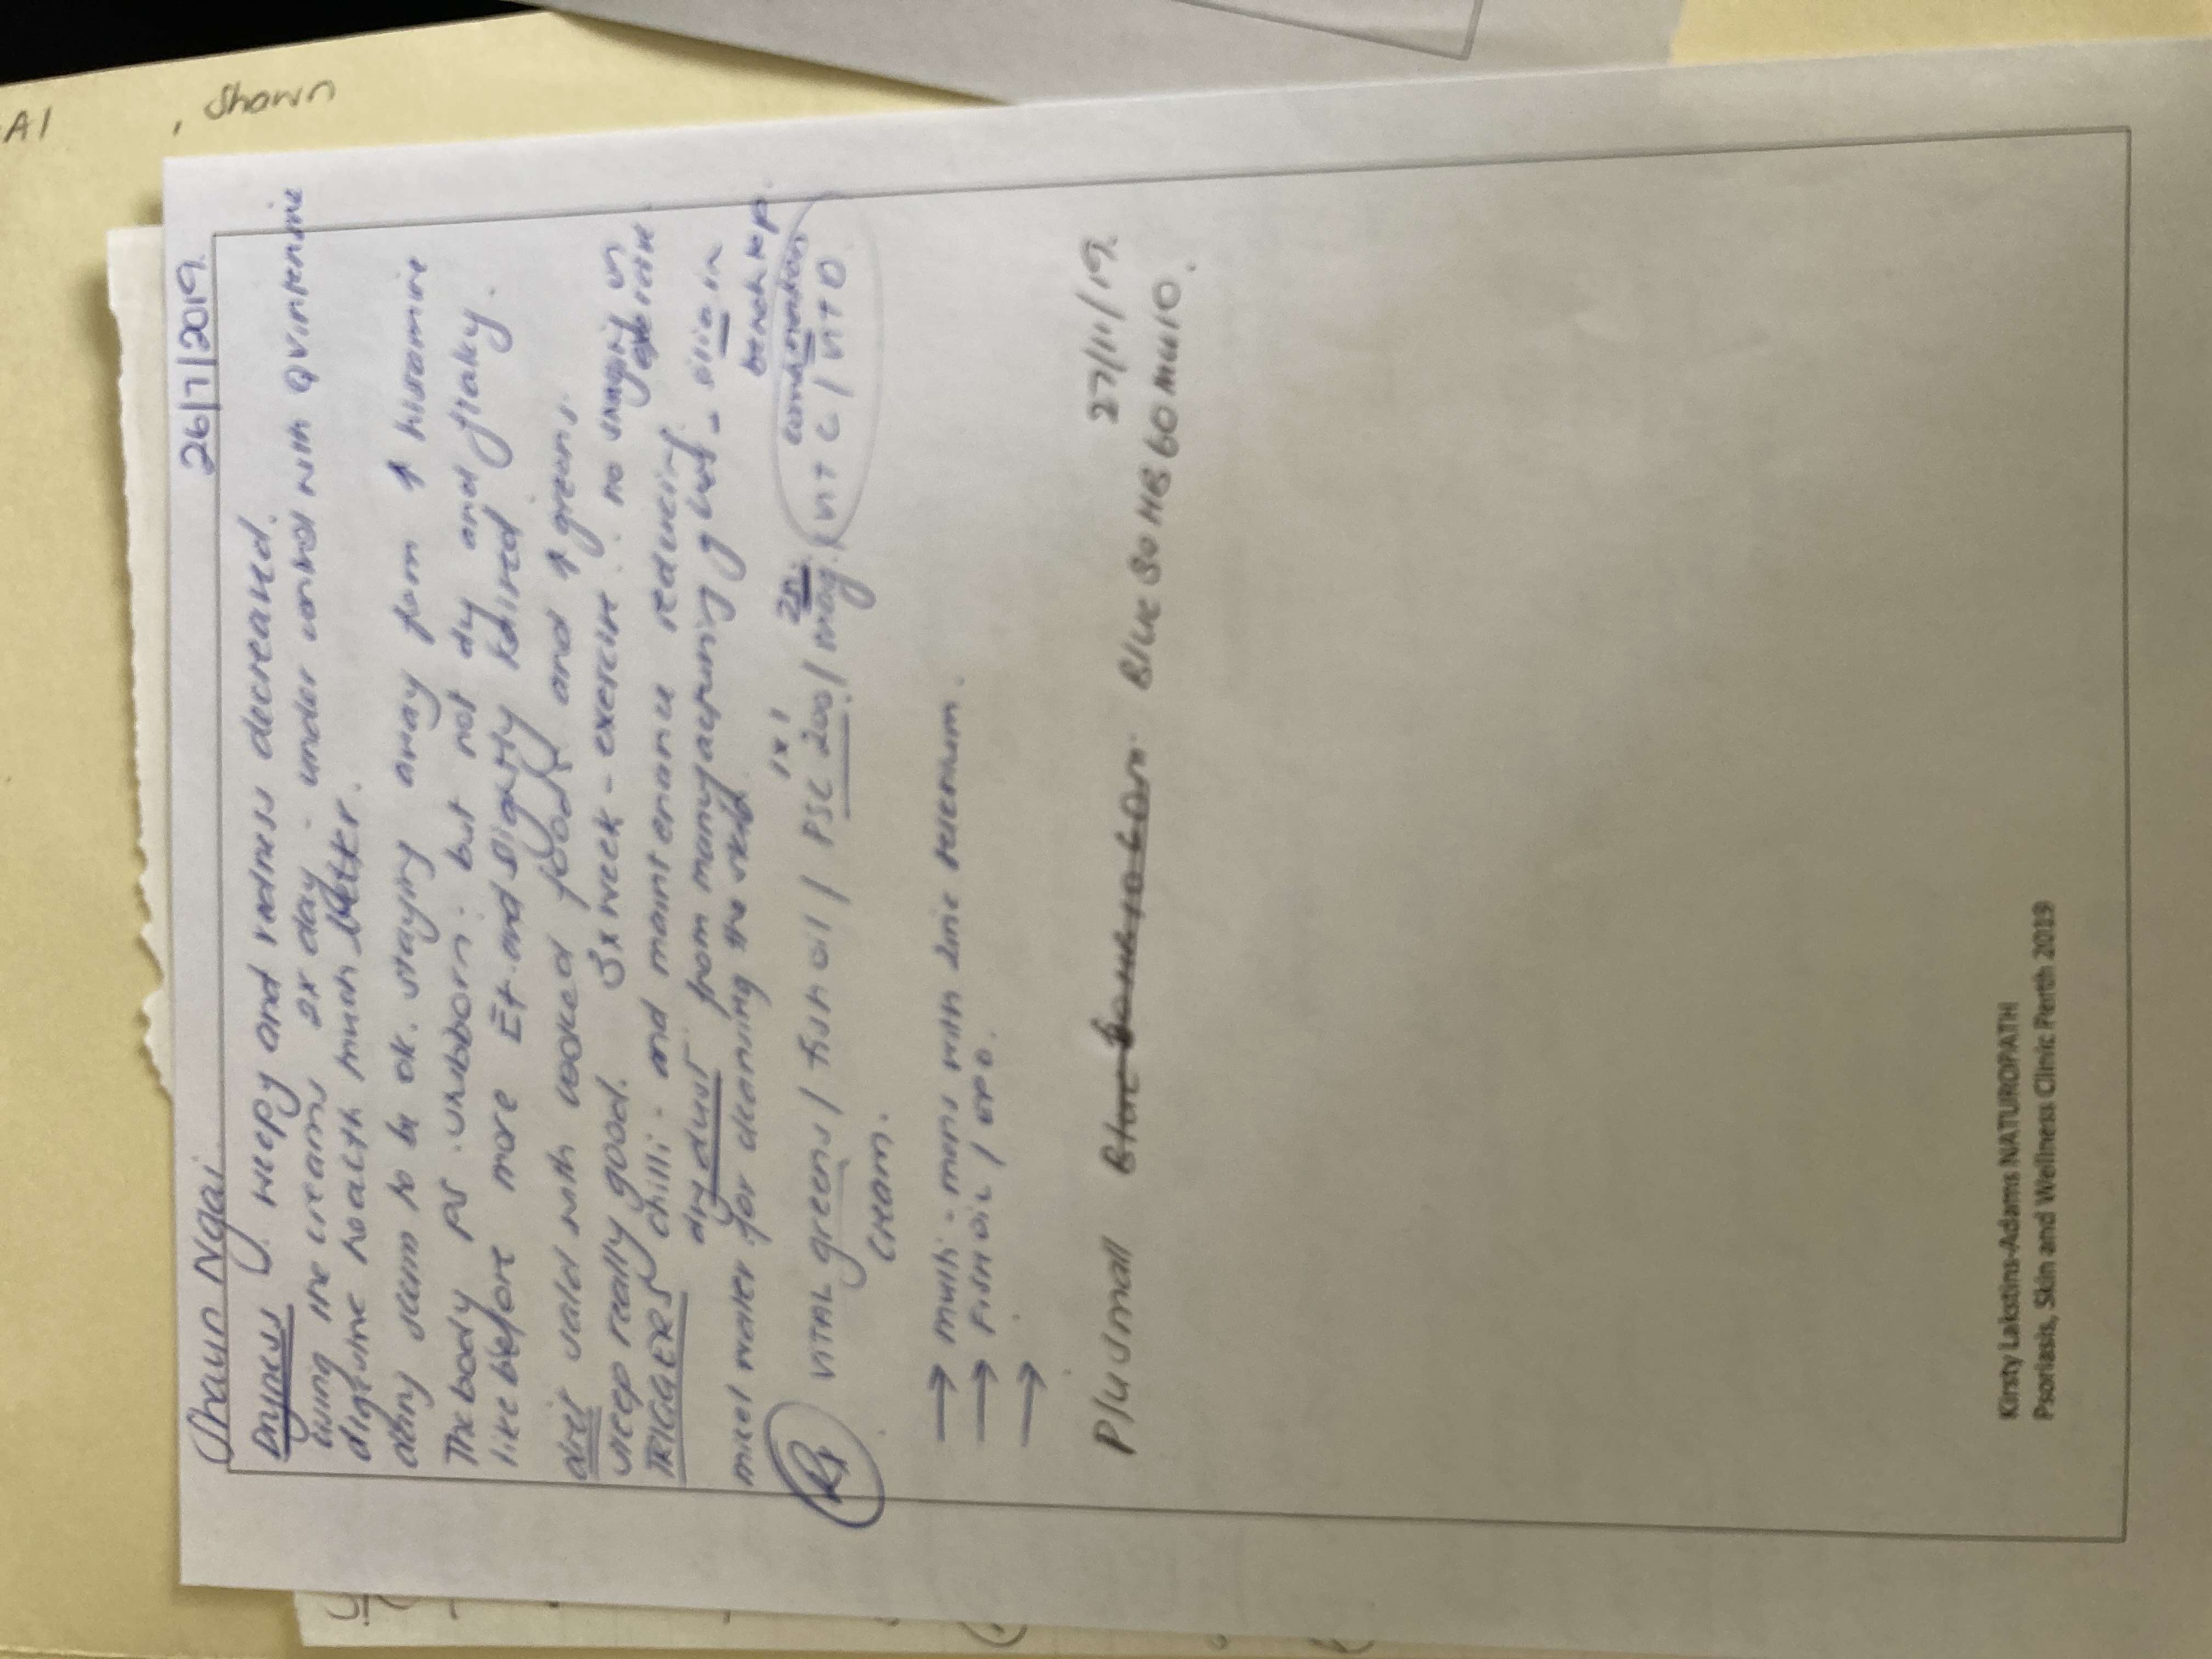 AI , Shawn
Shaun Ngai. 26/7/2019.
Dryness weepy and redness decreased.
using the creams 2x day - under control with QV intensive
digestive health much better.
skin seem to be ok. staying away from ↑ histamine
The body is stubborn: but not dry and flaky.
like before more and slightly
diet salad with cooked foods and ↑ greens.
sleep really good. 3x week - exercise. no
TRIGGERS chilli - and maintenance reducing
dry dust from manufacturing of - silica in
benchtop.
water for cleaning the skin.
1x1 combination
Rx VITAL greens / fish oil / PSC 200 / mag. vit C / vit D
cream.
→ multi - mens with zinc selenium.
→ Fish oil / EPO.
→
27/11/19.
Plu small Blue 30 HB 60 MU 10.
Kirsty Lakstins-Adams NATUROPATH
Psoriasis, Skin and Wellness Clinic Perth 2019